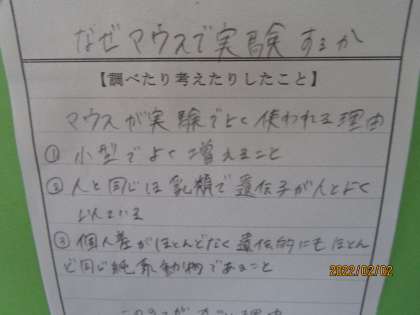 なぜマウスで実験するか
【調べたり考えたりしたこと】
マウスが実験でよく使われる理由
① 小型でよく増えること
② 人と同じほ乳類で遺伝子が人とよく
似ている
③ 個人差がほとんどなく遺伝的にもほとん
ど同じ純系動物であること
2022/02/02